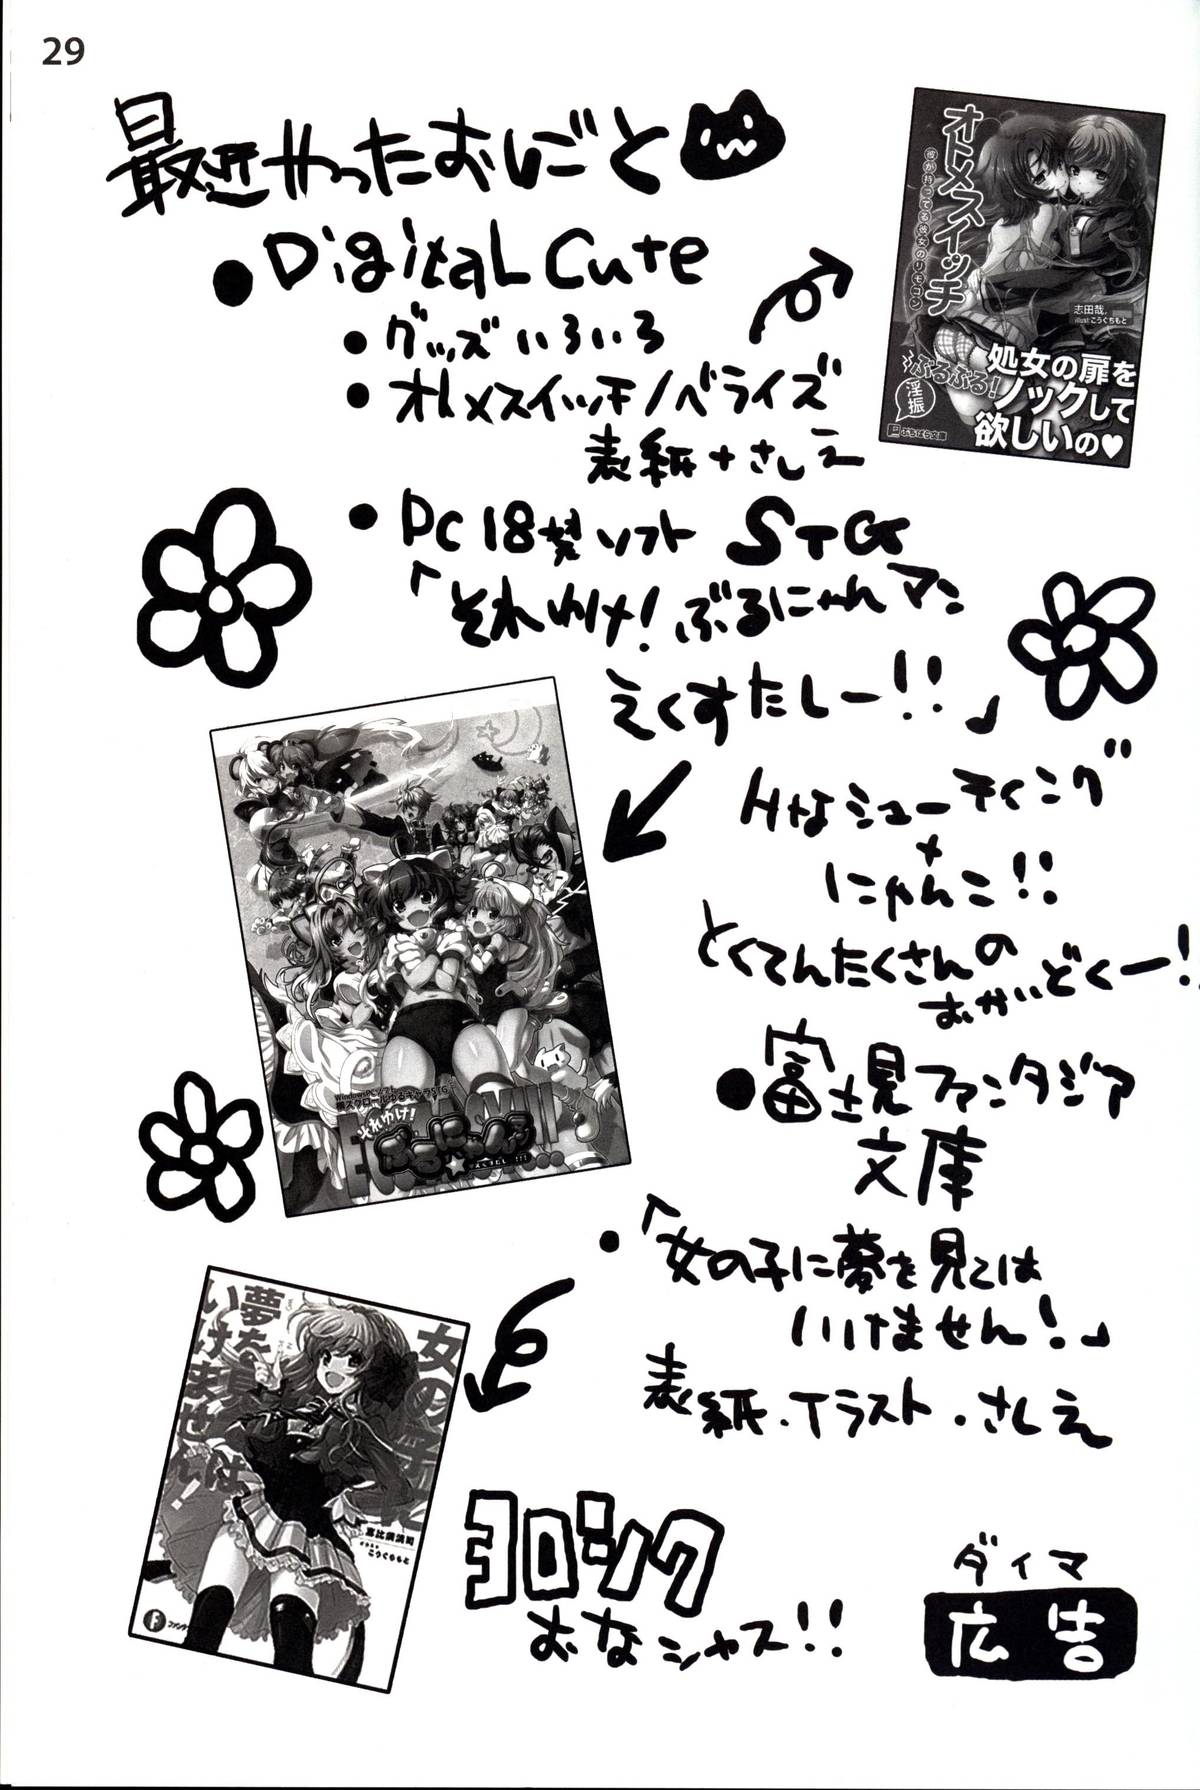 29
最近やったおしごと
・Digital Cute
・グッズいろいろ
・オトメスイッチノベライズ
表紙+さしえ
・PC18禁ソフト STG
「それゆけ!ぶるにゃんマン
えくすたしー!!」
Hなシューティング
+
にゃんこ!!
とくてんたくさんの
おかいどくー!
・富士見ファンタジア
文庫
・「女の子に夢を見ては
いけません!」
表紙・イラスト・さしえ
ヨロシク
おなシャス!!
ダイマ
広告
オトメスイッチ
彼が持ってる彼女のリモコン
志田哉
illust:こうぐちもと
ぶるぶる!
淫振
処女の扉を
ノックして
欲しいの♥
ぷちぱら文庫
WindowsPCソフト
横スクロールゆるキャラSTG
それゆけ!
ぶるにゃんマン
女の子に
夢を見ては
いけません!
恵比須清司
イラスト
こうぐちもと